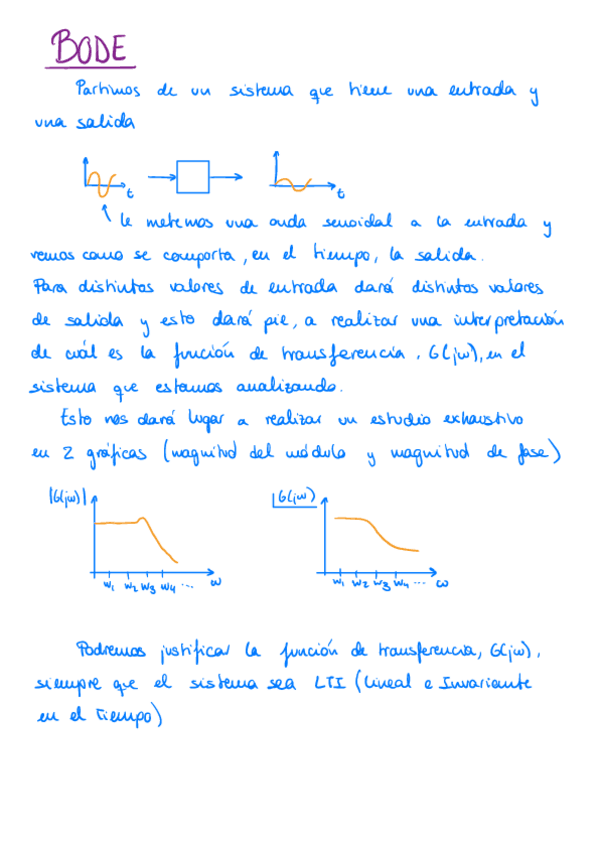 BODE
Partimos de un sistema que tiene una entrada y
una salida
t
t
le metemos una onda senoidal a la entrada y
vemos como se comporta, en el tiempo, la salida.
Para distintos valores de entrada dará distintos valores
de salida y esto dará pie, a realizar una interpretación
de cuál es la función de transferencia, G(jω), en el
sistema que estamos analizando.
Esto nos dará lugar a realizar un estudio exhaustivo
en 2 gráficas (magnitud del módulo y magnitud de fase)
|G(jω)|
G(jω)
ω1 ω2 ω3 ω4 ... ω
ω1 ω2 ω3 ω4 ... ω
Podremos justificar la función de transferencia, G(jω),
siempre que el sistema sea LTI (Lineal e Invariante
en el Tiempo)